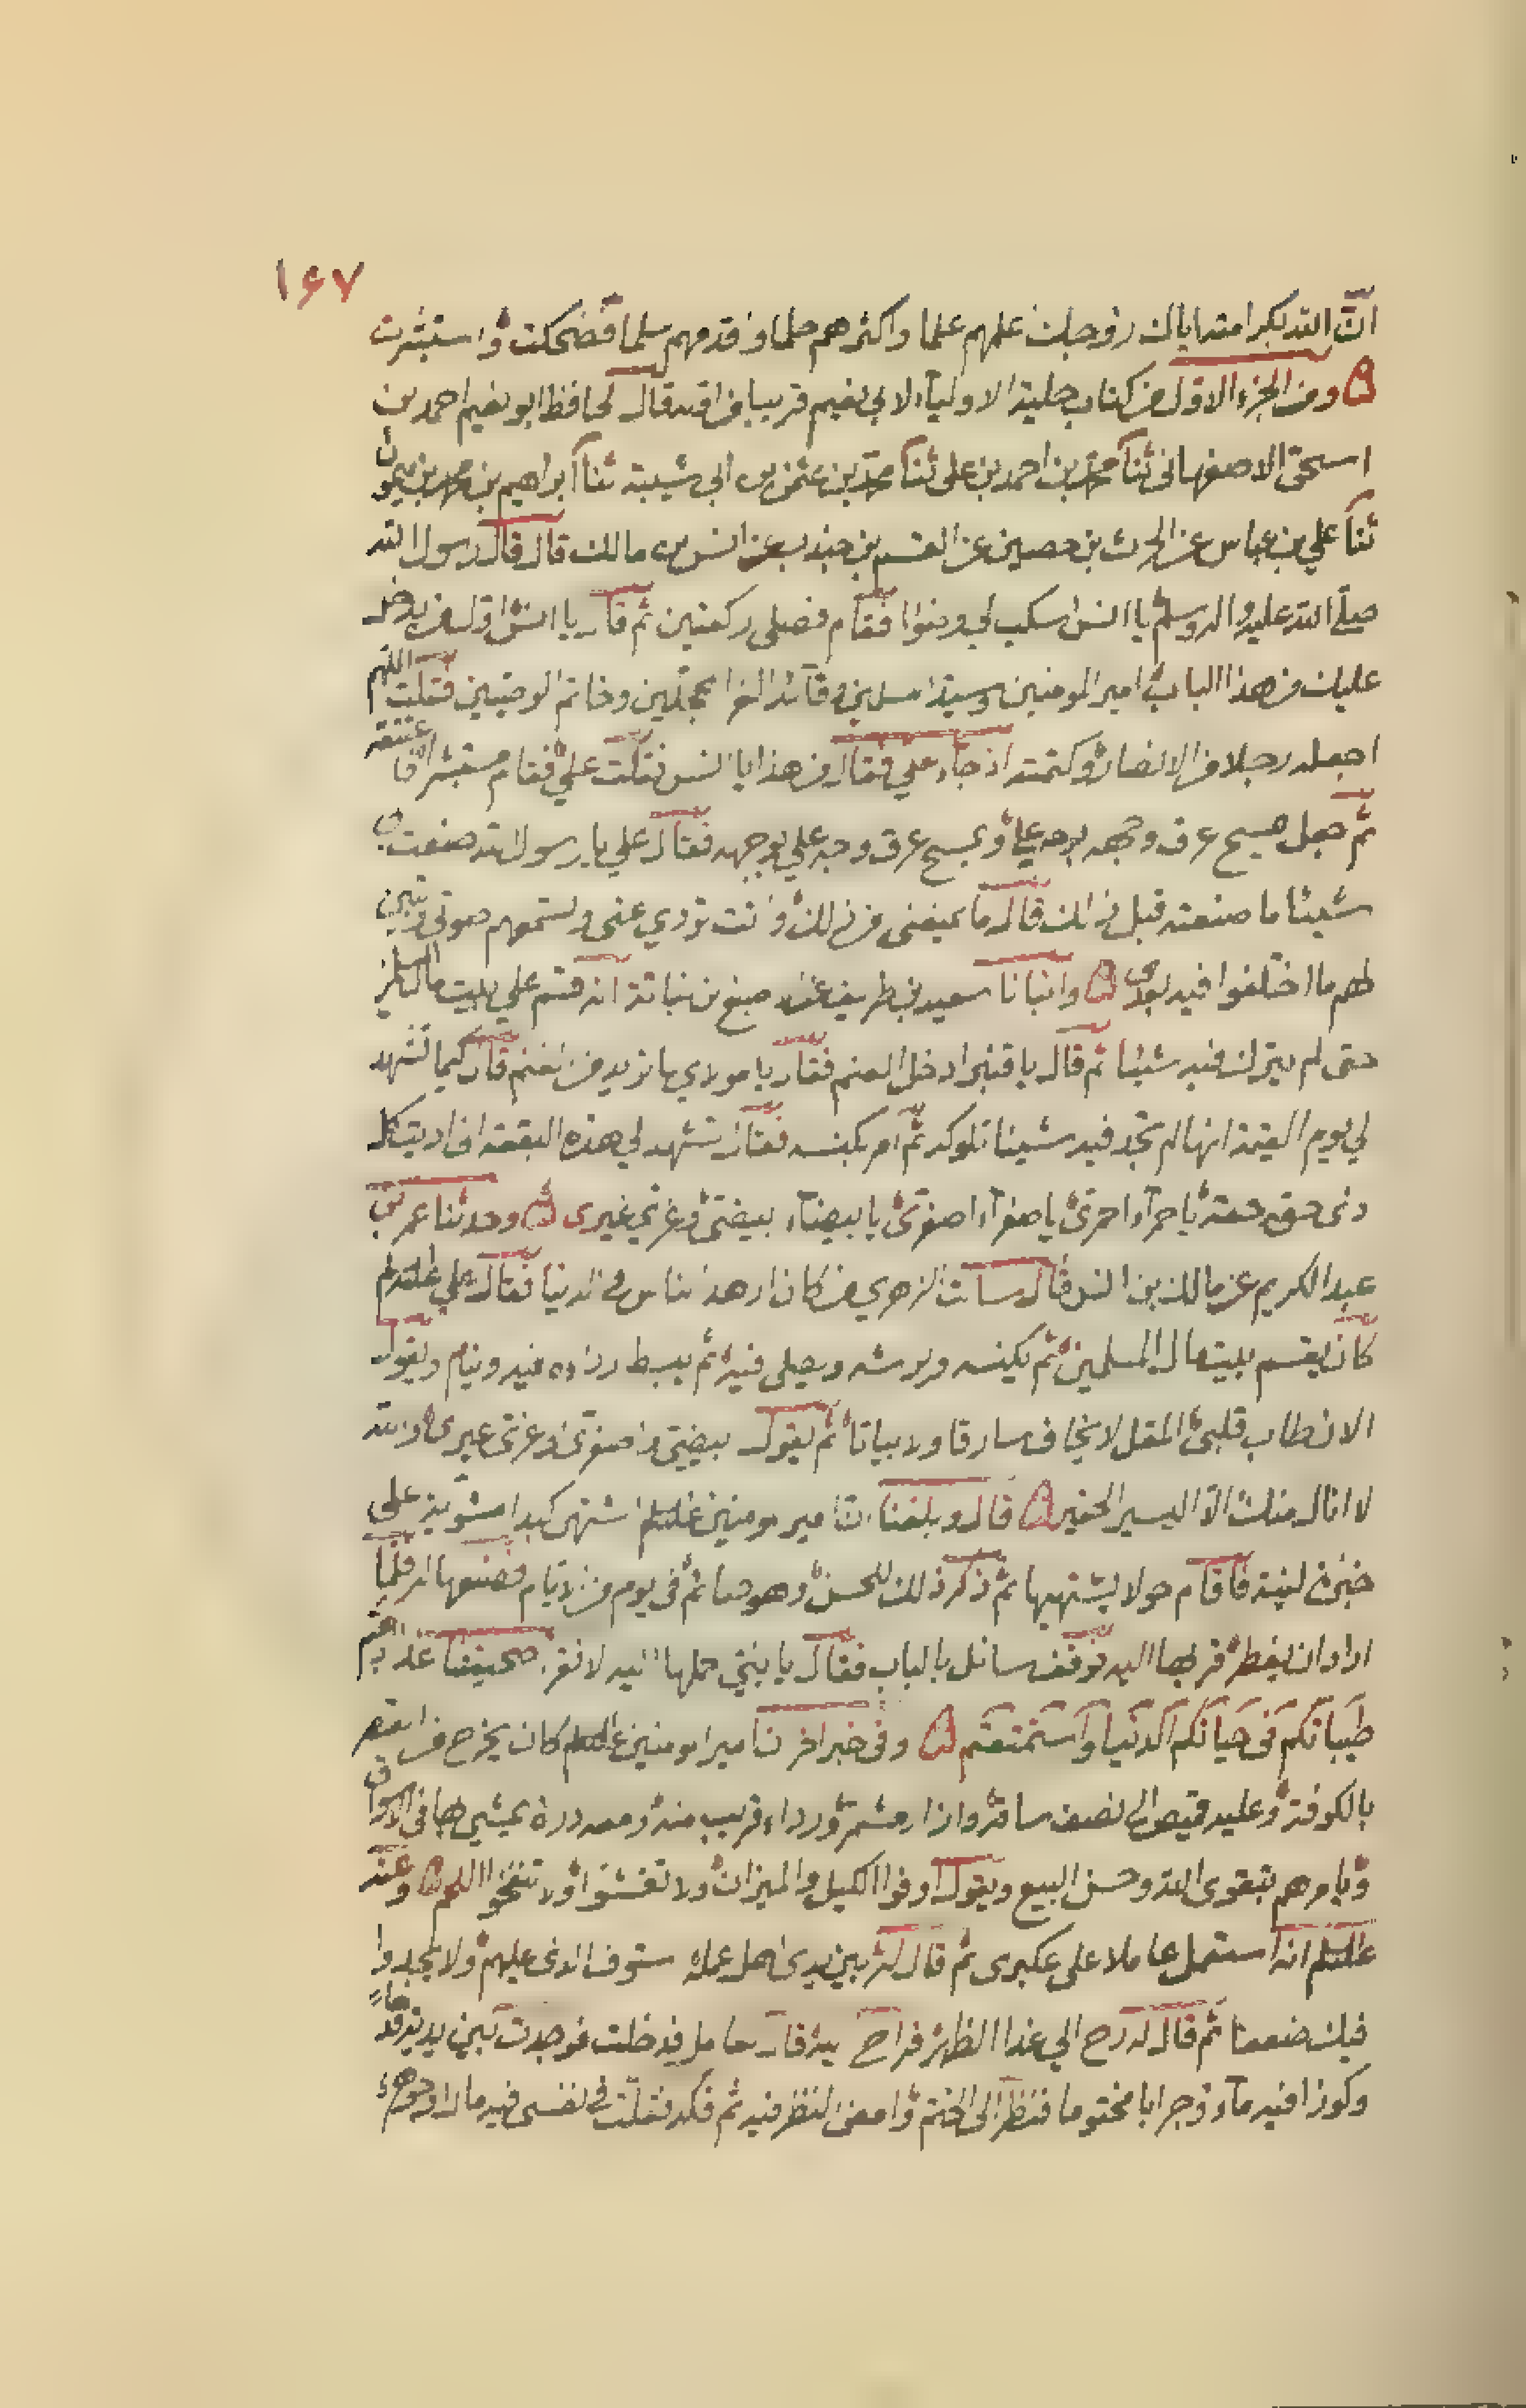 ۱۶۷
ان الله بكرامته اياك زوجك علمهم علما واكثرهم حلما واقدمهم سلما فضحكت واستبشرت
ومن الجزء الاول من كتاب حلية الاولياء لابي نعيم قريبا من اقد قال الحافظ ابو نعيم احمد بن
اسحق الاصفهانى ثنا محمد بن احمد بن على ثنا محمد بن عثمن بن ابي شيبة ثنا ابراهيم بن محمد بن ميمون
ثنا علي بن عباس عن الحرث بن حصين عن القسم بن جندب عن انس بن مالك قال قال رسول الله
صلى الله عليه واله وسلم يا انس اسكب لي وضوا فقام فصلى ركعتين ثم قال يا انس اول من يدخل
عليك من هذا الباب امير المومنين وسيد المسلمين وقائد الغر المحجلين وخاتم الوصيين فقلت اللهم
اجعله رجلا من الانصار وكتمته اذ جاء علي فقال من هذا يا انس فقلت علي فقام مستبشرا فاعتنقه
ثم جعل يمسح عرق وجهه بوجه علي ويمسح عرق وجه علي بوجهه فقال علي يا رسول الله صنعت بي
شيئا ما صنعته قبل ذلك قال ما يمنعنى من ذلك وانت تؤدي عنى وتسمعهم صوتى وتبين
لهم ما اختلفوا فيه بعدى وانبانا سعيد بن طريف عن اصبغ بن نباتة انه قسم علي بيت مال المسلمين
حتى لم يترك فيه شيئا ثم قال يا قنبر ادخل الغنم فقال يا مولاي ما تريد من الغنم قال كيما تشهد
لي يوم القيمة انها لم تجد فيه شيئا تلوكه ثم امر بكنسه فقال تشهد لي هذه البقعة انى اديت كل
ذى حق حقه يا حمراء احمرى يا صفراء اصفرى يا بيضاء بيضى وغري غيرى وحدثنا عمر بن
عبد الكريم عن مالك بن انس قال سالت الزهري من كان ازهد الناس في الدنيا فقال علي عليه السلم
كان يقسم بيت مال المسلمين ثم يكنسه ويرشه ويصلى فيه ثم يبسط رداءه فيه وينام ويقول
الان طاب قلبي المقل لا يخاف سارقا ولا بياتا ثم يقول بيضي واصفرى وغرى غيرى والله
لا انال منك الا اليسير الحقير قال وبلغنا ان امير المومنين عليه السلم اشتهى كبدا مشوية على
خبزة لينة فاقام حولا يشتهيها ثم ذكر ذلك للحسن وهو صائم في يوم من الايام فصنعها له فلما
اراد ان يفطر قربها اليه فوقف سائل بالباب فقال يا بني حملها اليه لا نقرء صحيفتنا غدا اذهبتم
طيباتكم فى حياتكم الدنيا واستمتعتم وفى خبر اخر ان امير المومنين عليه السلم كان يخرج من القصر
بالكوفة وعليه قميص الى نصف ساقه وازار مشمر ورداء قريب منه ومعه درة يمشي بها فى الاسواق
ويامرهم بتقوى الله وحسن البيع ويقول اوفوا الكيل والميزان ولا تغشوا ولا تنفخوا اللحم وعنه
عليه السلم انه استعمل عاملا على عكبرى ثم قال له بين يدى اهل عمله ستوف الذى عليهم ولا يجدوا
فيك ضعفا ثم قال له رح الي غدا الظهر فراح اليه قال العامل فدخلت فوجدت بين يديه قدحا
وكوزا فيه ماء وجرابا مختوما فنظر الى الختم وامعن النظر فيه ثم فكه فقلت في نفسى فيه مال او جوهر